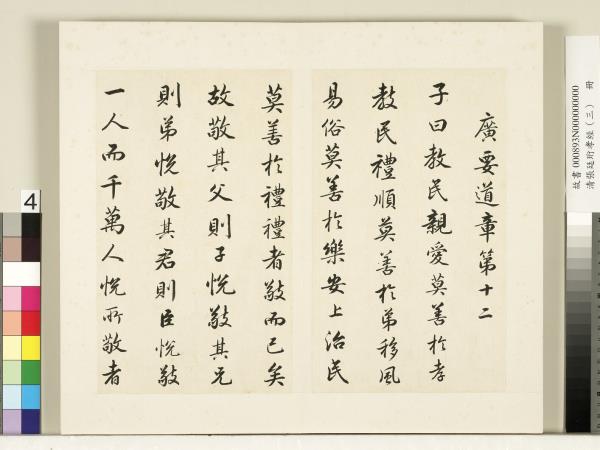 廣要道章第十二
子曰教民親愛莫善於孝
教民禮順莫善於弟移風
易俗莫善於樂安上治民
莫善於禮禮者敬而已矣
故敬其父則子悅敬其兄
則弟悅敬其君則臣悅敬
一人而千萬人悅所敬者
故書 000893N000000000
清張廷珩孝經（三） 冊
4